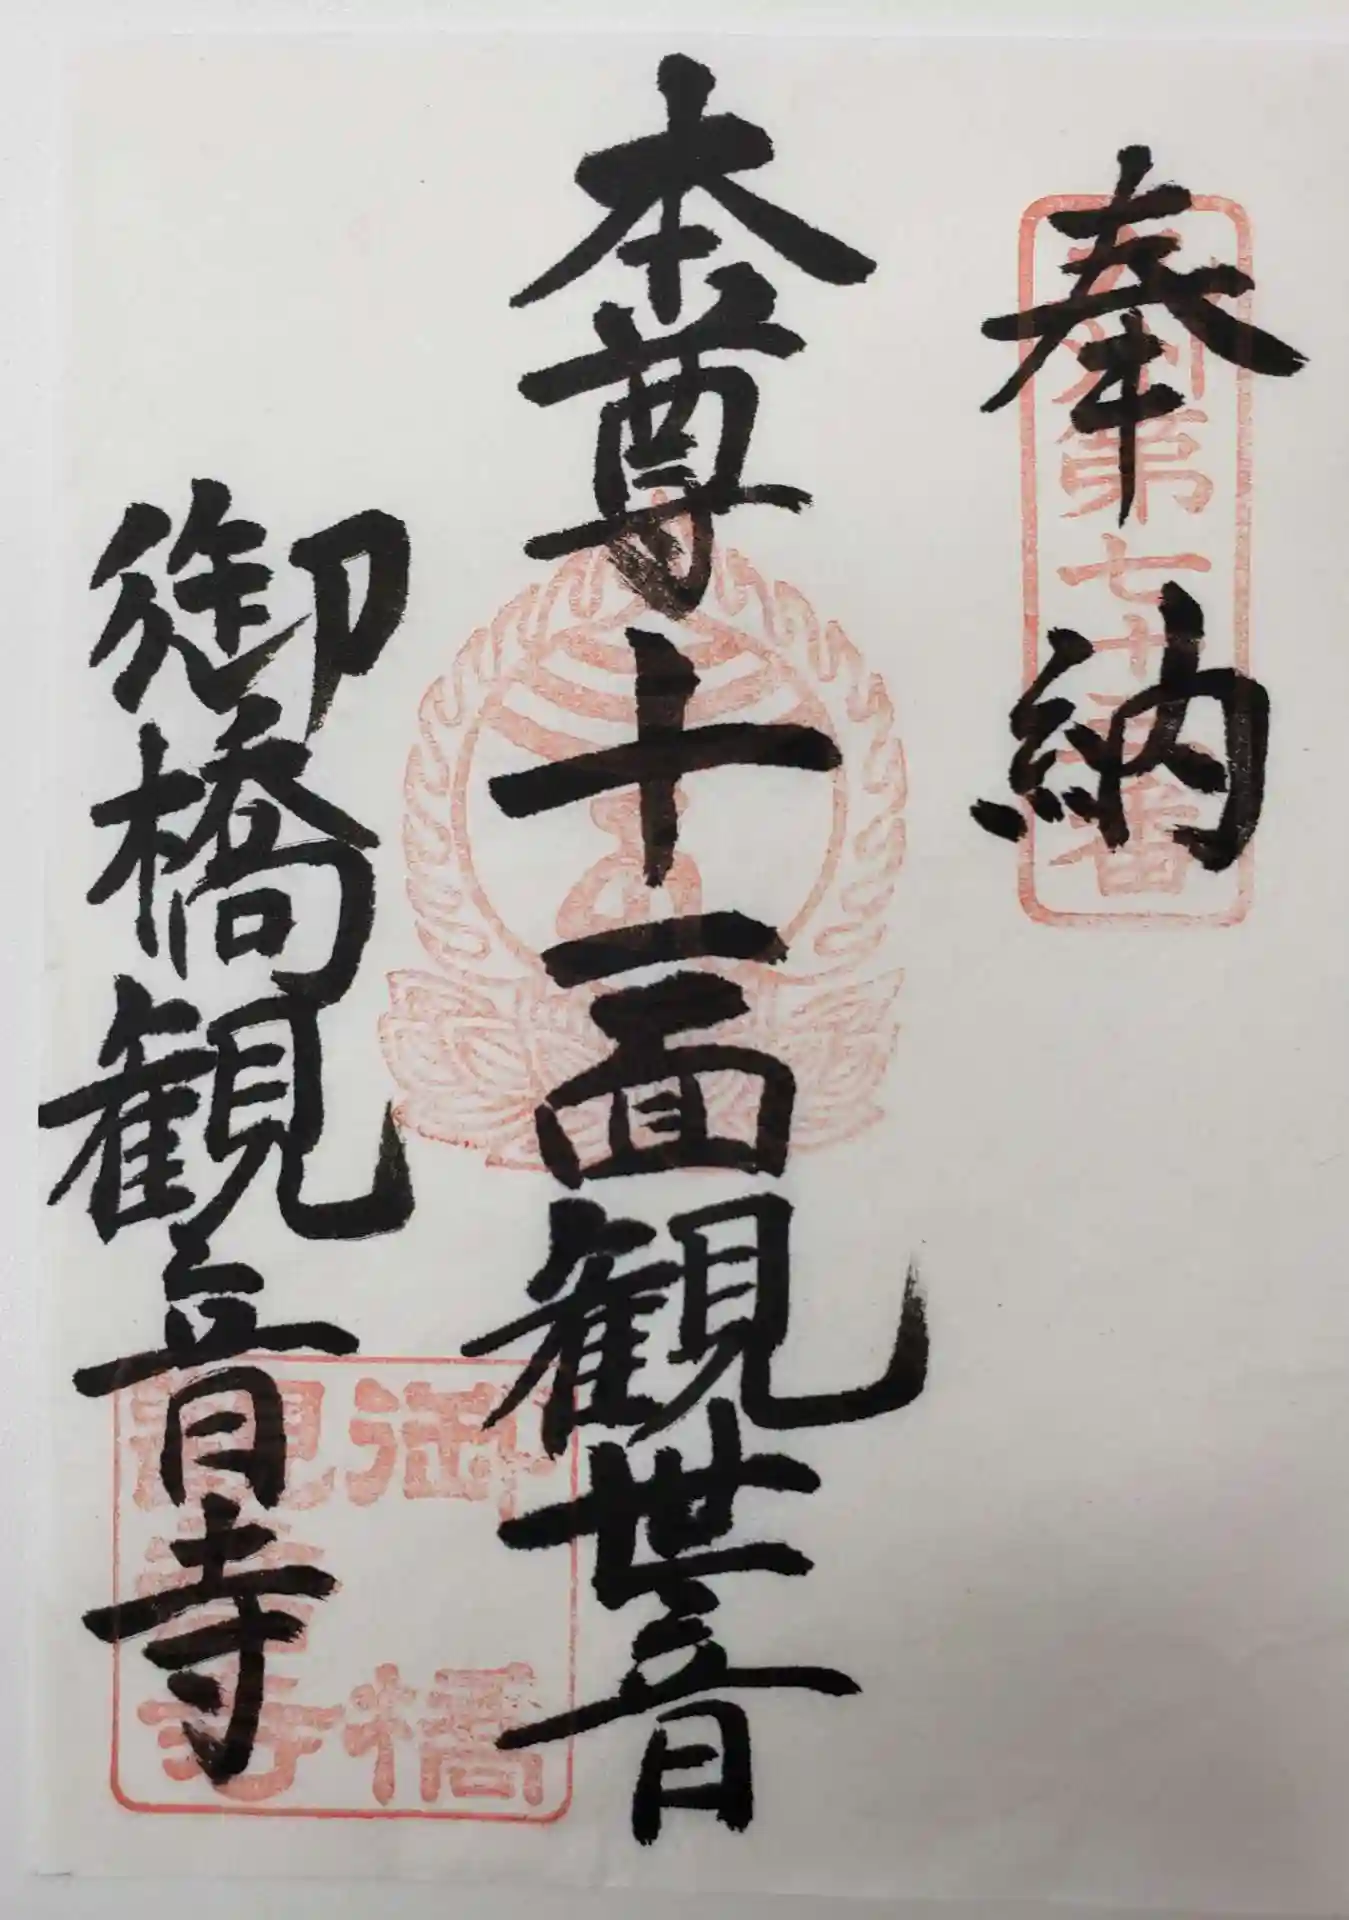 奉納
九州第七十三番
本尊十一面観世音
御橋観音寺
御橋
観音寺